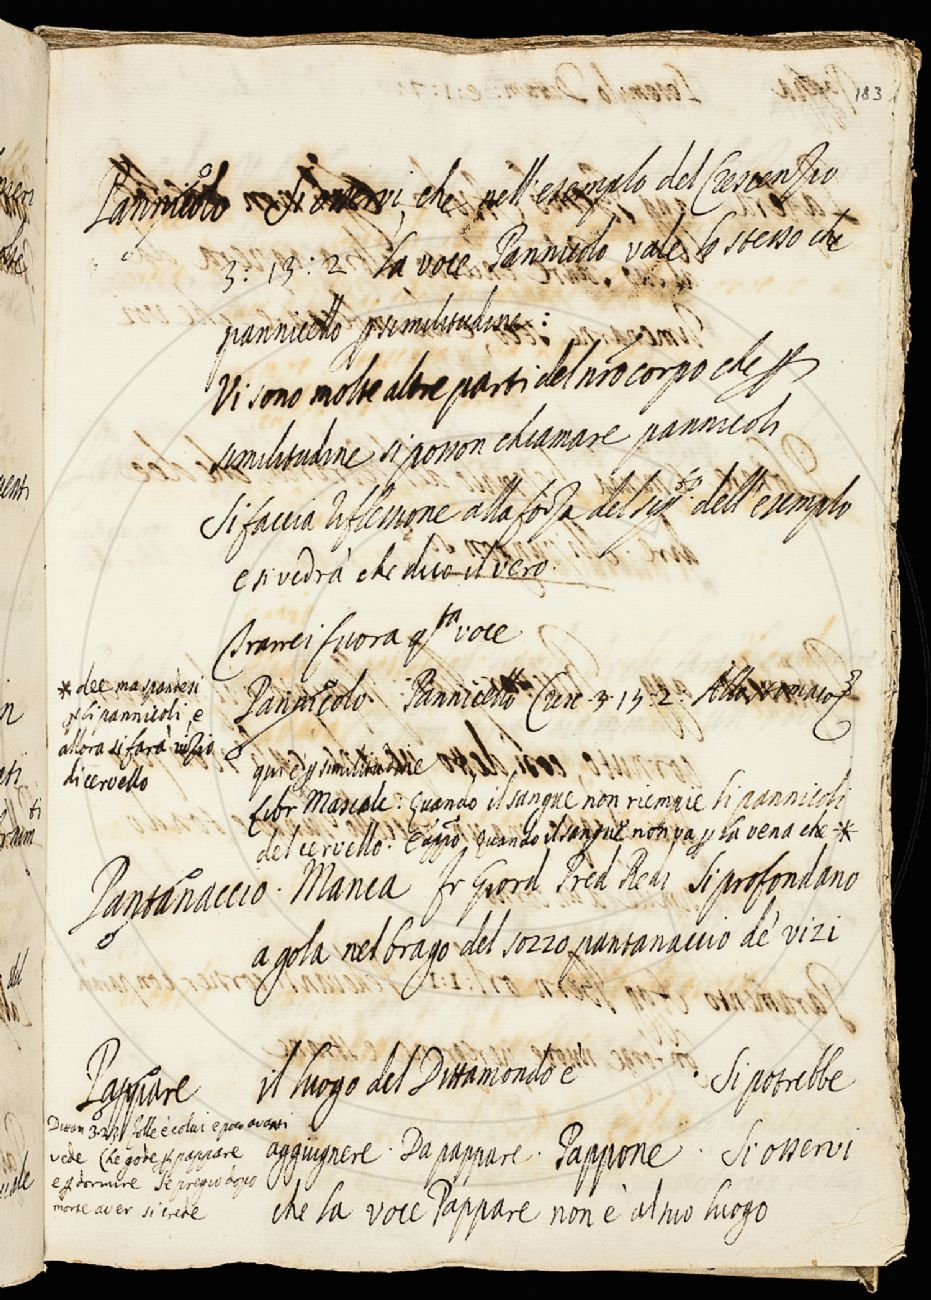 183
Pannicolo Si osservi, che nell'esemplo del Crescenzio
3: 13: 2 la voce Pannicolo vale lo stesso che
pannicello p similitudine:
Vi sono molte altre parti del nro corpo che p
similitudine si posson chiamare pannicoli
Si faccia riflessione alla forza del sigto dell'esemplo
e si vedrà che dico il vero.
Trarrei fuora qsta voce
Pannicolo. Pannicello Cresc 3 13 2.
qui è p similitudine
Libr Mascalc: Quando il sangue non riempie li pannicoli
del cervello. E appo, Quando il sangue non va p la vena che *
* dee ma spandesi
p li pannicoli, e
allora si farà vizio
di cervello
Pantanaccio. Manca Fr Giord Pred Red Si profondano
a gola nel brago del sozzo pantanaccio de' vizi
Pappare il luogo del Dittamondo è . Si potrebbe
aggiugnere. Da pappare. Pappone. Si osservi
che la voce Pappare non è al suo luogo
Dittam 3 23 folle è colui e poco avanti
vede Che gode p pappare
e p dormire Se pregio dopo
morte aver si crede